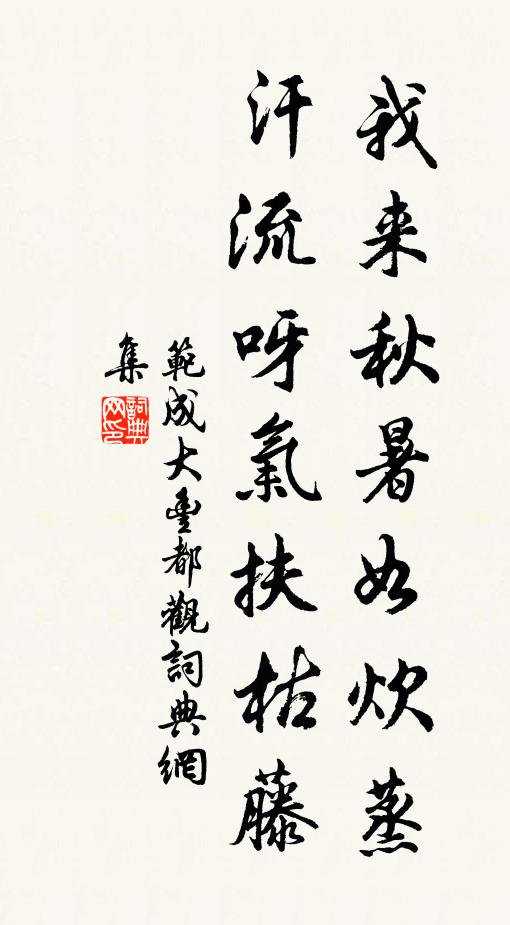 我来秋暑如炊蒸
汗流呀氣扶枯藤
範成大豊都觀詞典網
集
詞典
网印